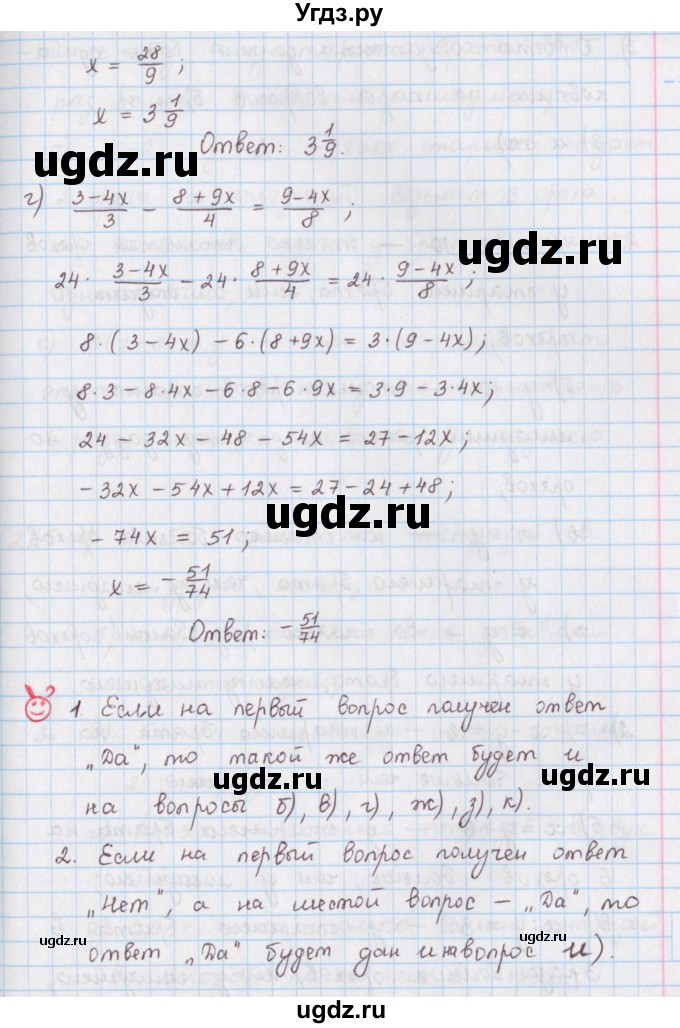 Угдз.ру
x = 28/9 ;
x = 3 1/9
Ответ: 3 1/9.
ugdz.ru
ugdz.ru
г) (3-4x)/3 - (8+9x)/4 = (9-4x)/8 ;
ugdz.ru
24· (3-4x)/3 - 24· (8+9x)/4 = 24· (9-4x)/8 ;
8·(3-4x) - 6·(8+9x) = 3·(9-4x);
ugdz.ru
8·3-8·4x-6·8-6·9x=3·9-3·4x;
24-32x-48-54x=27-12x;
-32x-54x+12x=27-24+48;
ugdz.ru
-74x = 51;
x = -51/74
Ответ: -51/74
ugdz.ru
1 Если на первый вопрос получен ответ
„Да“, то такой же ответ будет и
ugdz.ru
на вопросы б), в), г), ж), з), к).
2. Если на первый вопрос получен ответ
ugdz.ru
„Нет“, а на шестой вопрос – „Да“, то
ugdz.ru
ugdz.ru
ответ „Да“ будет дан и на вопрос и).
ugdz.ru